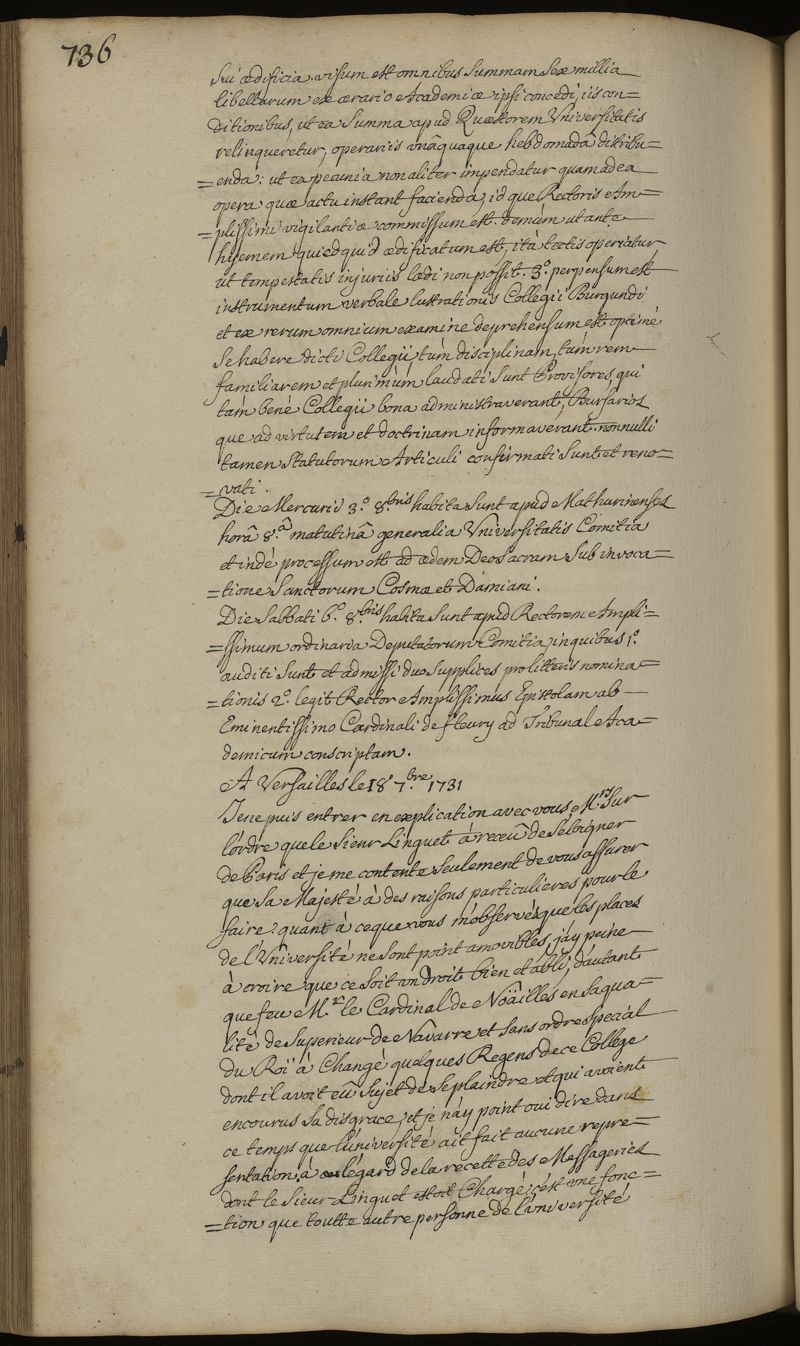 736
sui ædificia. visum est omnibus Summam Sex millia
libellarum ex ærario Academiæ ipsi concedi, iis con=
ditionibus, ut ea Summa apud Quæstorem Universitatis
relinqueretur, operariis unâquaque hebdomada distribu=
=enda: ut ea pecunia non aliter impendatur quam ad ea
opera quæ actu instant facienda, id que Rectoris Am=
=plissimi vigilantiæ commissum est. demùm ut ante
hyemem quicdquid ædificatum est, ità tectis operiatur
ut tempestatis injuriis lædi non possit. 3.º perpensum est
instrumentum verbale lustrationis Collegii Burgundi
et ex rerum omnium examine deprehensum est optimè
Se habere dicti Collegii tùm disciplinam, tùm rem
familiarem et plurimùm laudati Sunt Provisores, qui
tàm benè Collegii bona administraverant, Bursarios
que ad virtutem et doctrinam informaverant. nonnulli
tamen Statutorum Articuli confirmati Sunt et reno=
=vati.
Die Mercurii 3.º 8.bris habita Sunt apud Mathurinenses
horâ 8.â matutinâ generalia Universitatis Comitia
et indè processum est ad ædem Deo Sacram Sub invoca=
=tione Sanctorum Cosmæ et Damiani.
Die Sabbati 6.º 8.bris habita Sunt apud Rectorem Ampli=
=ssimum ordinaria Deputatorum Comitia, in quibus 1.º
auditi Sunt et admissi duo Supplices pro litteris nomina=
=tionis 2.º legit Rector Amplissimus Epistolam ab
Eminentissimo Cardinali de fleury ad Tribunal Aca=
demicum conscriptam.
A Versailles le 18 7.bre 1731
Je ne puis entrer en explication avec vous M.rs Sur
l'ordre que le Sieur Linguet à receû de S'éloigner
de Paris et je me contente Seulement de vous assurer
que Sa Majesté à des raisons particulieres pour le
faire: quant à ceque vous m'observés que les places
de l'Université ne Sont point amovibles, j'ay peine
à croire que ce Soit un droit bien etabli, d'autant
que feu M.r le Cardinal de Nöailles en Sa qua=
lité de Superieur de Navarre et Sans ordre Special
du Roï à Changé quelques Regens de ce College
dont il avoit eû Sujet de Se plaindre et qui avoient
encourus Sa disgrace; et je n'ay point oui dire dans
ce temps que l'université ait fait aucune repre=
sentation, à l'égard de la recette des Messageries
dont le Sieur Linguet estoit Chargé; c'est une fonc=
=tion que toutte autre personne de l'université